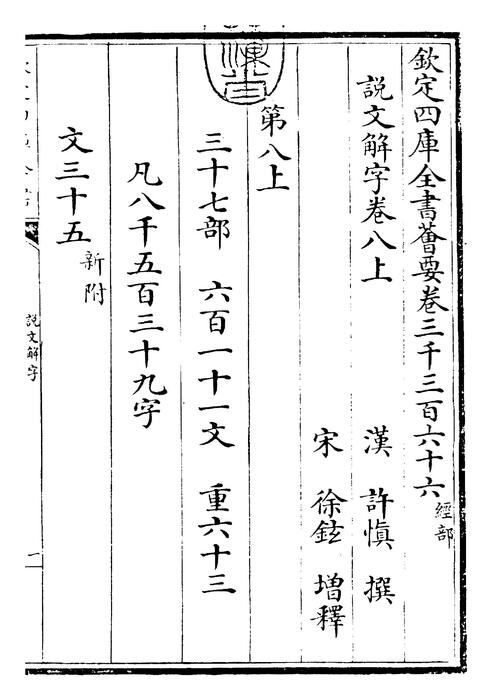 欽定四庫全書薈要卷三千三百六十六 經部
説文解字卷八上
漢 許慎 撰
宋 徐鉉 增釋
第八上
三十七部 六百一十一文 重六十三
凡八千五百三十九字
文三十五 新附
説文解字
一